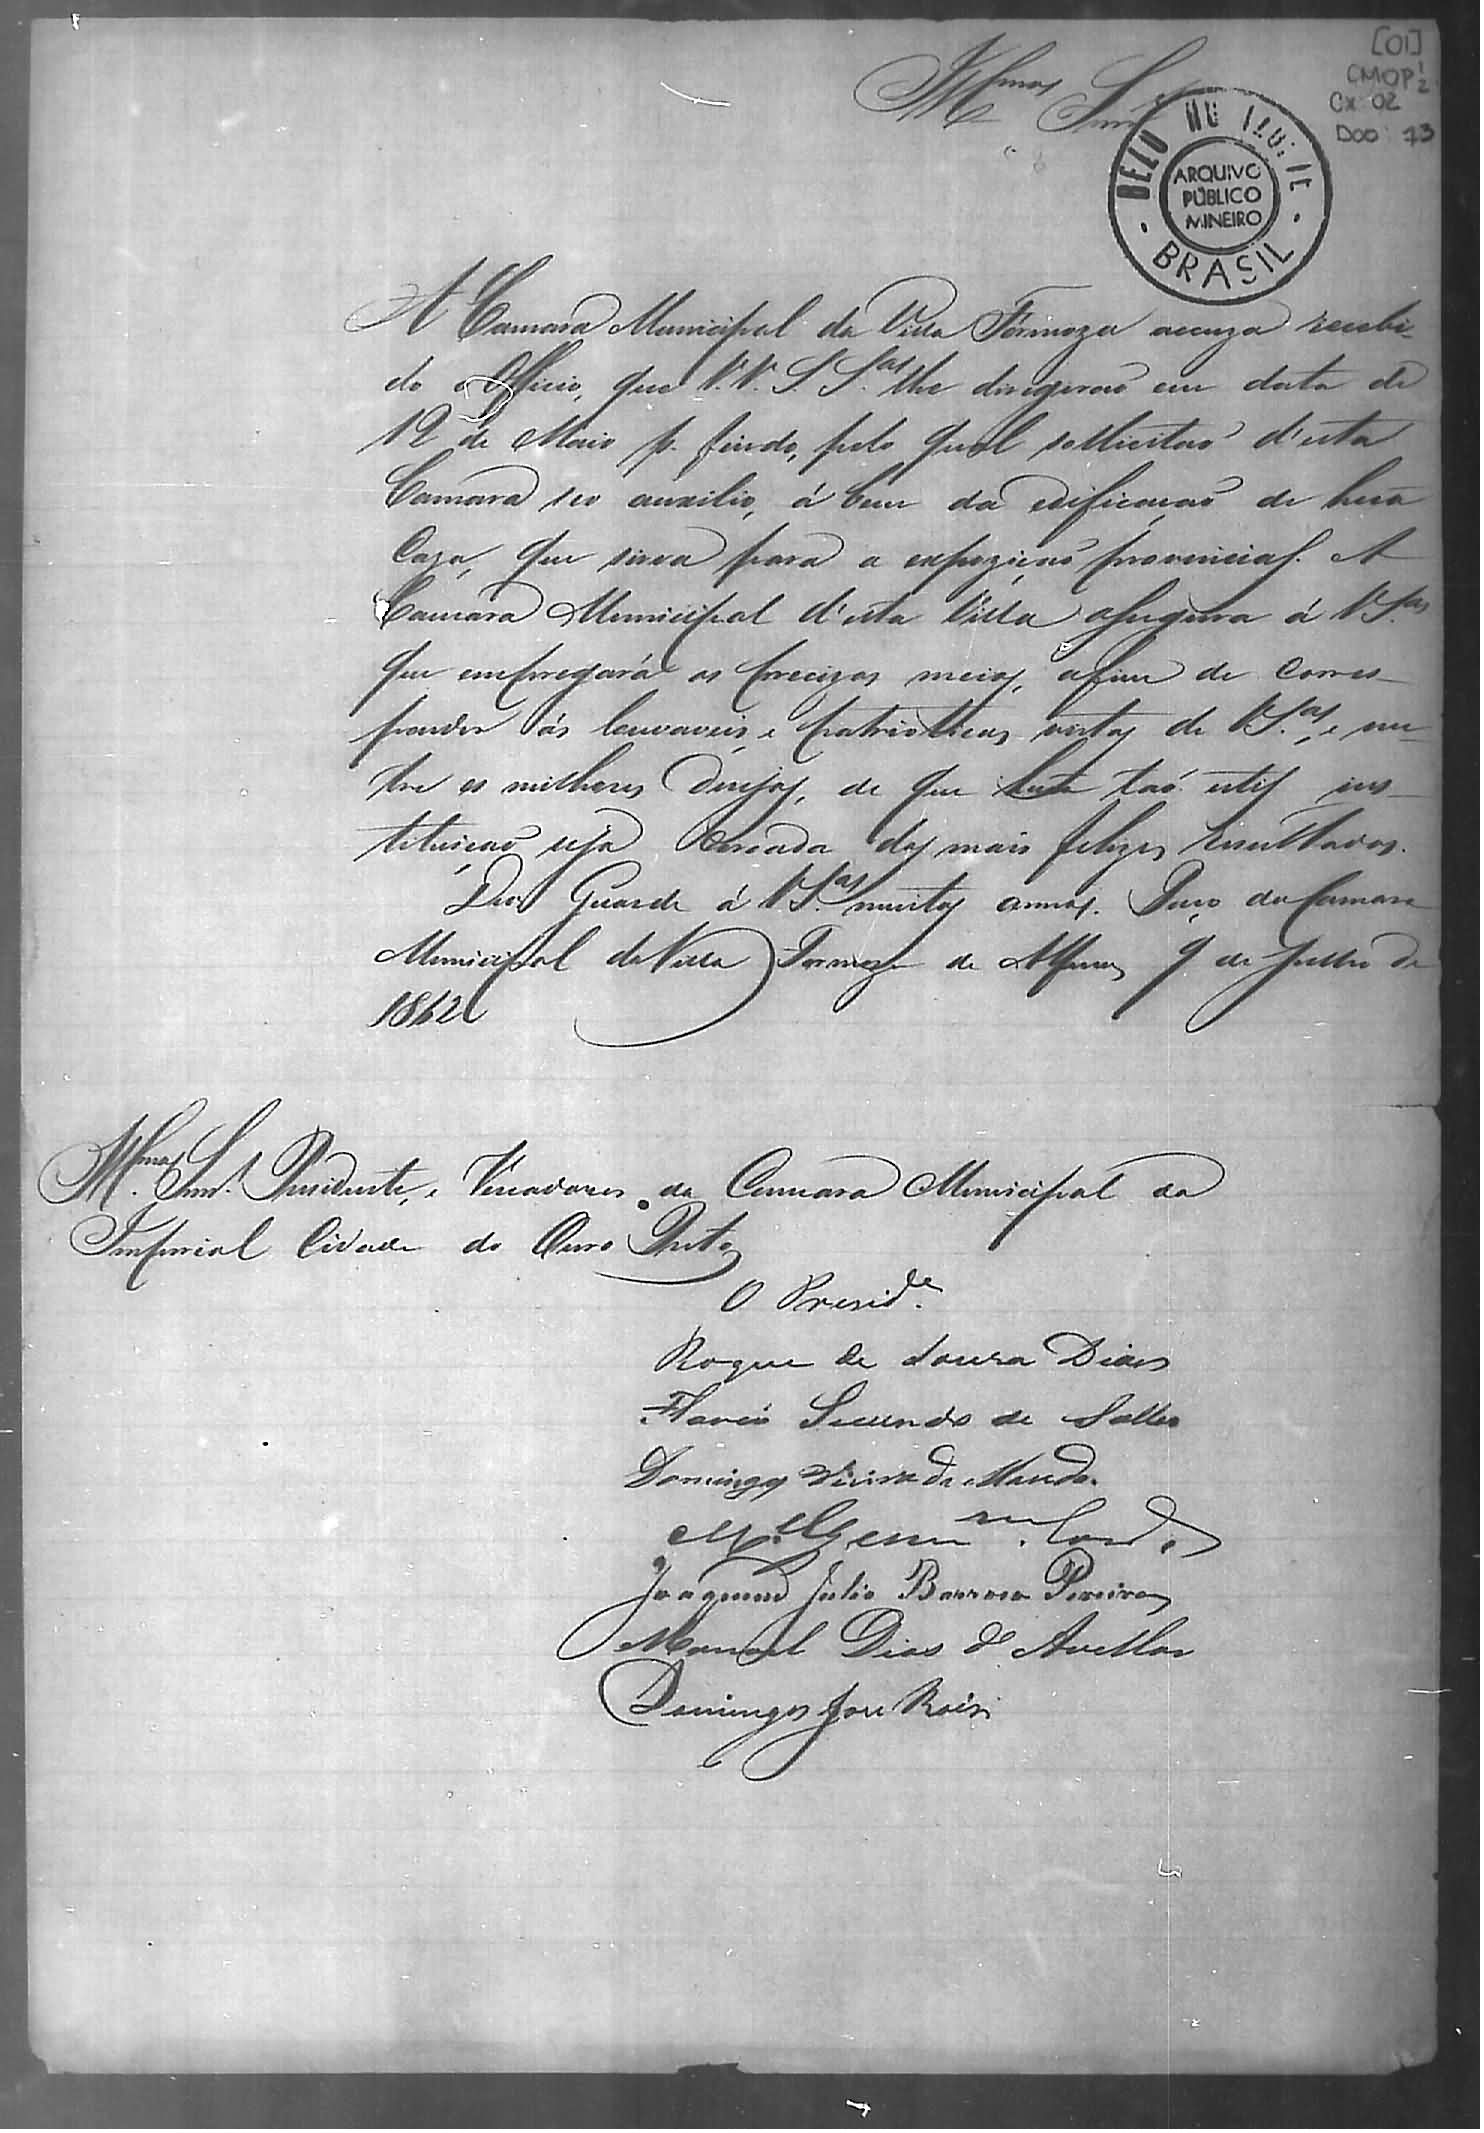 [01]
CMOP 1/2
Cx 02
Doc: 73
Illmos Snrs
BELO HORIZONTE
ARQUIVO
PÚBLICO
MINEIRO
BRASIL
A Camara Municipal da Villa Formoza accuza recebi-
do o Officio, que V.V. S.S.as lhe dirigirão em data de
12 de Maio p. findo, pelo qual sollicitão d'esta
Camara seo auxilio, á bem da edificação de huã
Caza, que sirva para a expozição provincial. A
Camara Municipal d'esta Villa assegura á VS.as
que empregará os precizos meios, afim de corres-
ponder ás louvaveis, e patrioticas vistas de VS.as, e nu-
tre os milhores dezejos, de que huã taõ util ins-
tituição seja coroada dos mais felizes rezultados.
Deos Guarde á VS.as muitos annos. Paço da Camara
Municipal da Villa Formoza de Alfenas 9 de Julho de
1862
Illmos Snrs. Presidente, e Vereadores da Camara Municipal da
Imperial Cidade do Ouro Preto
O Presid.e
Roque de Souza Dias
Flavio Secundo de Salles
Domingos Vieira da
Joaquim Julio Barroso Pereira
Manoel Dias d'Avellar
Domingos Jose